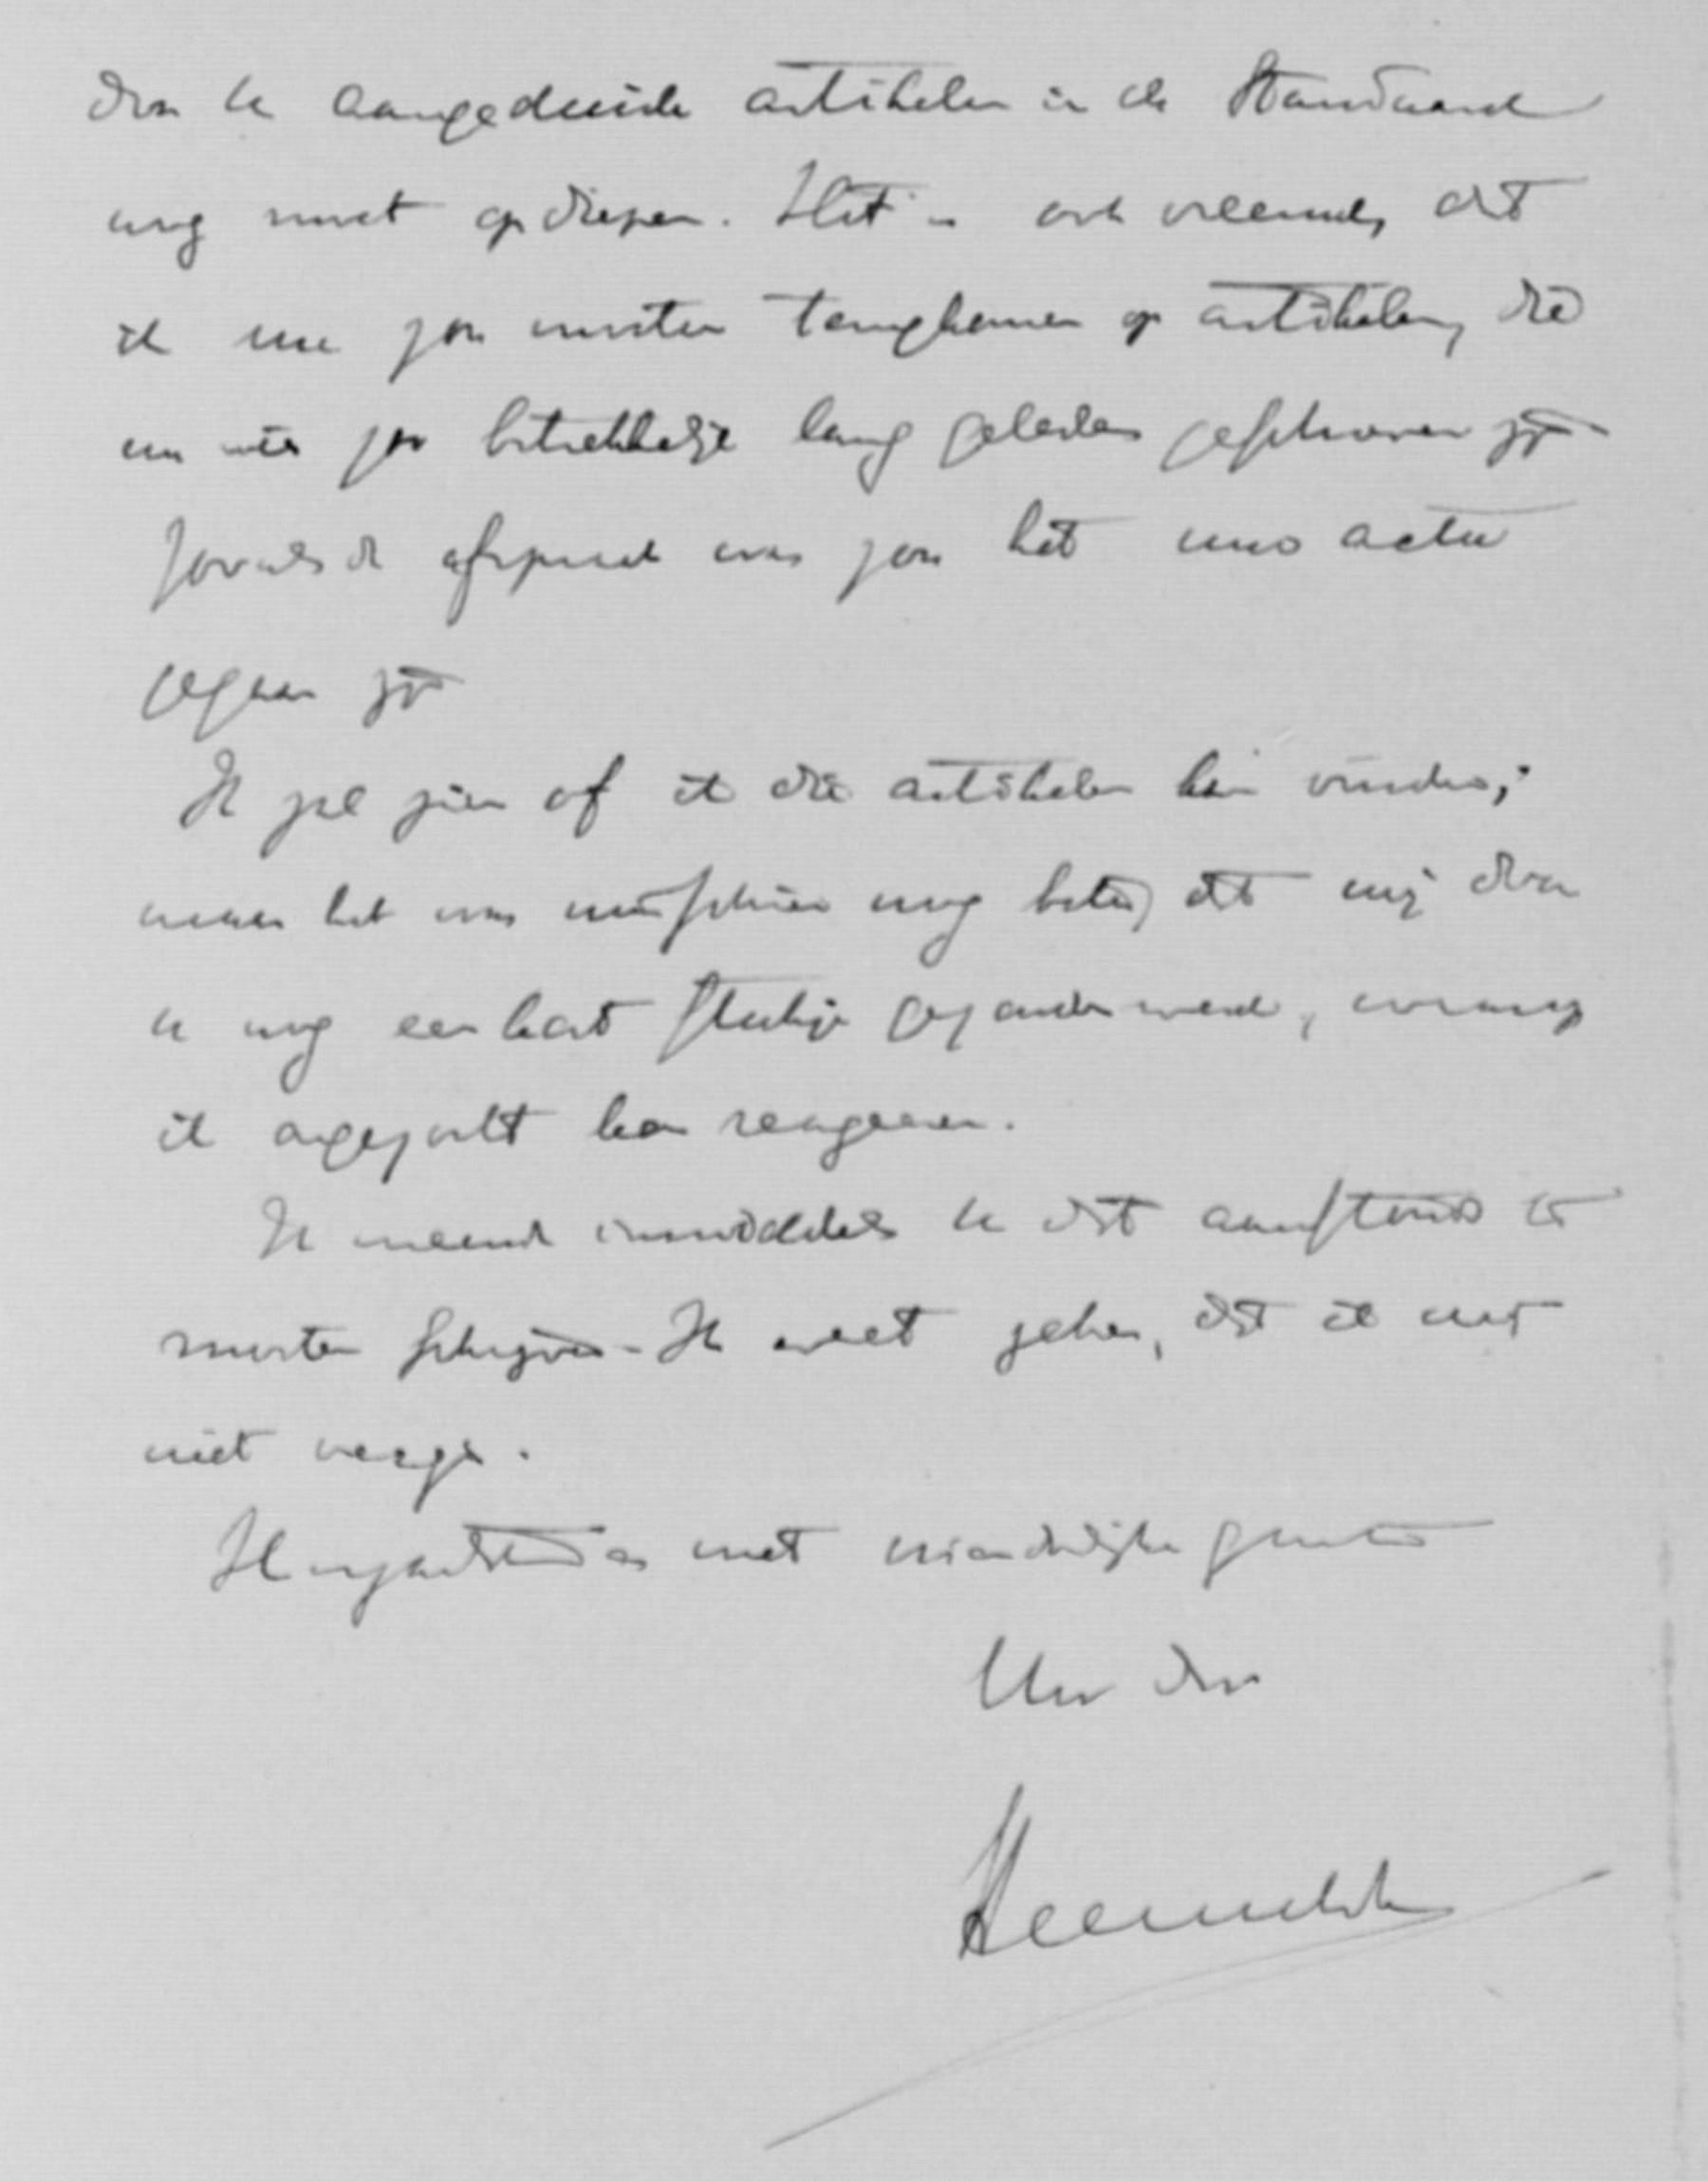 door U aangeduide artikelen in de Standaard
nog moet opdiepen. Het is ook vreemd, dat
ik nu zou moeten terugkomen op artikelen, die
nu weer zoo betrekkelijk lang geleden geschreven zijn
Zooals de afspraak was zou het uno actu
gegaan zijn
Ik zal zien of ik die artikelen kan vinden;
maar het was misschien nog beter, dat mij door
U nog een kort stukje gezonden werd, waarop
ik ongezocht kan reageeren.
Ik meende inmiddels U dit aanstonds te
moeten schrijven. Ik weet zeker, dat ik mij
niet vergis.
Hoogachtend en met vriendelijke groeten
Uw dw